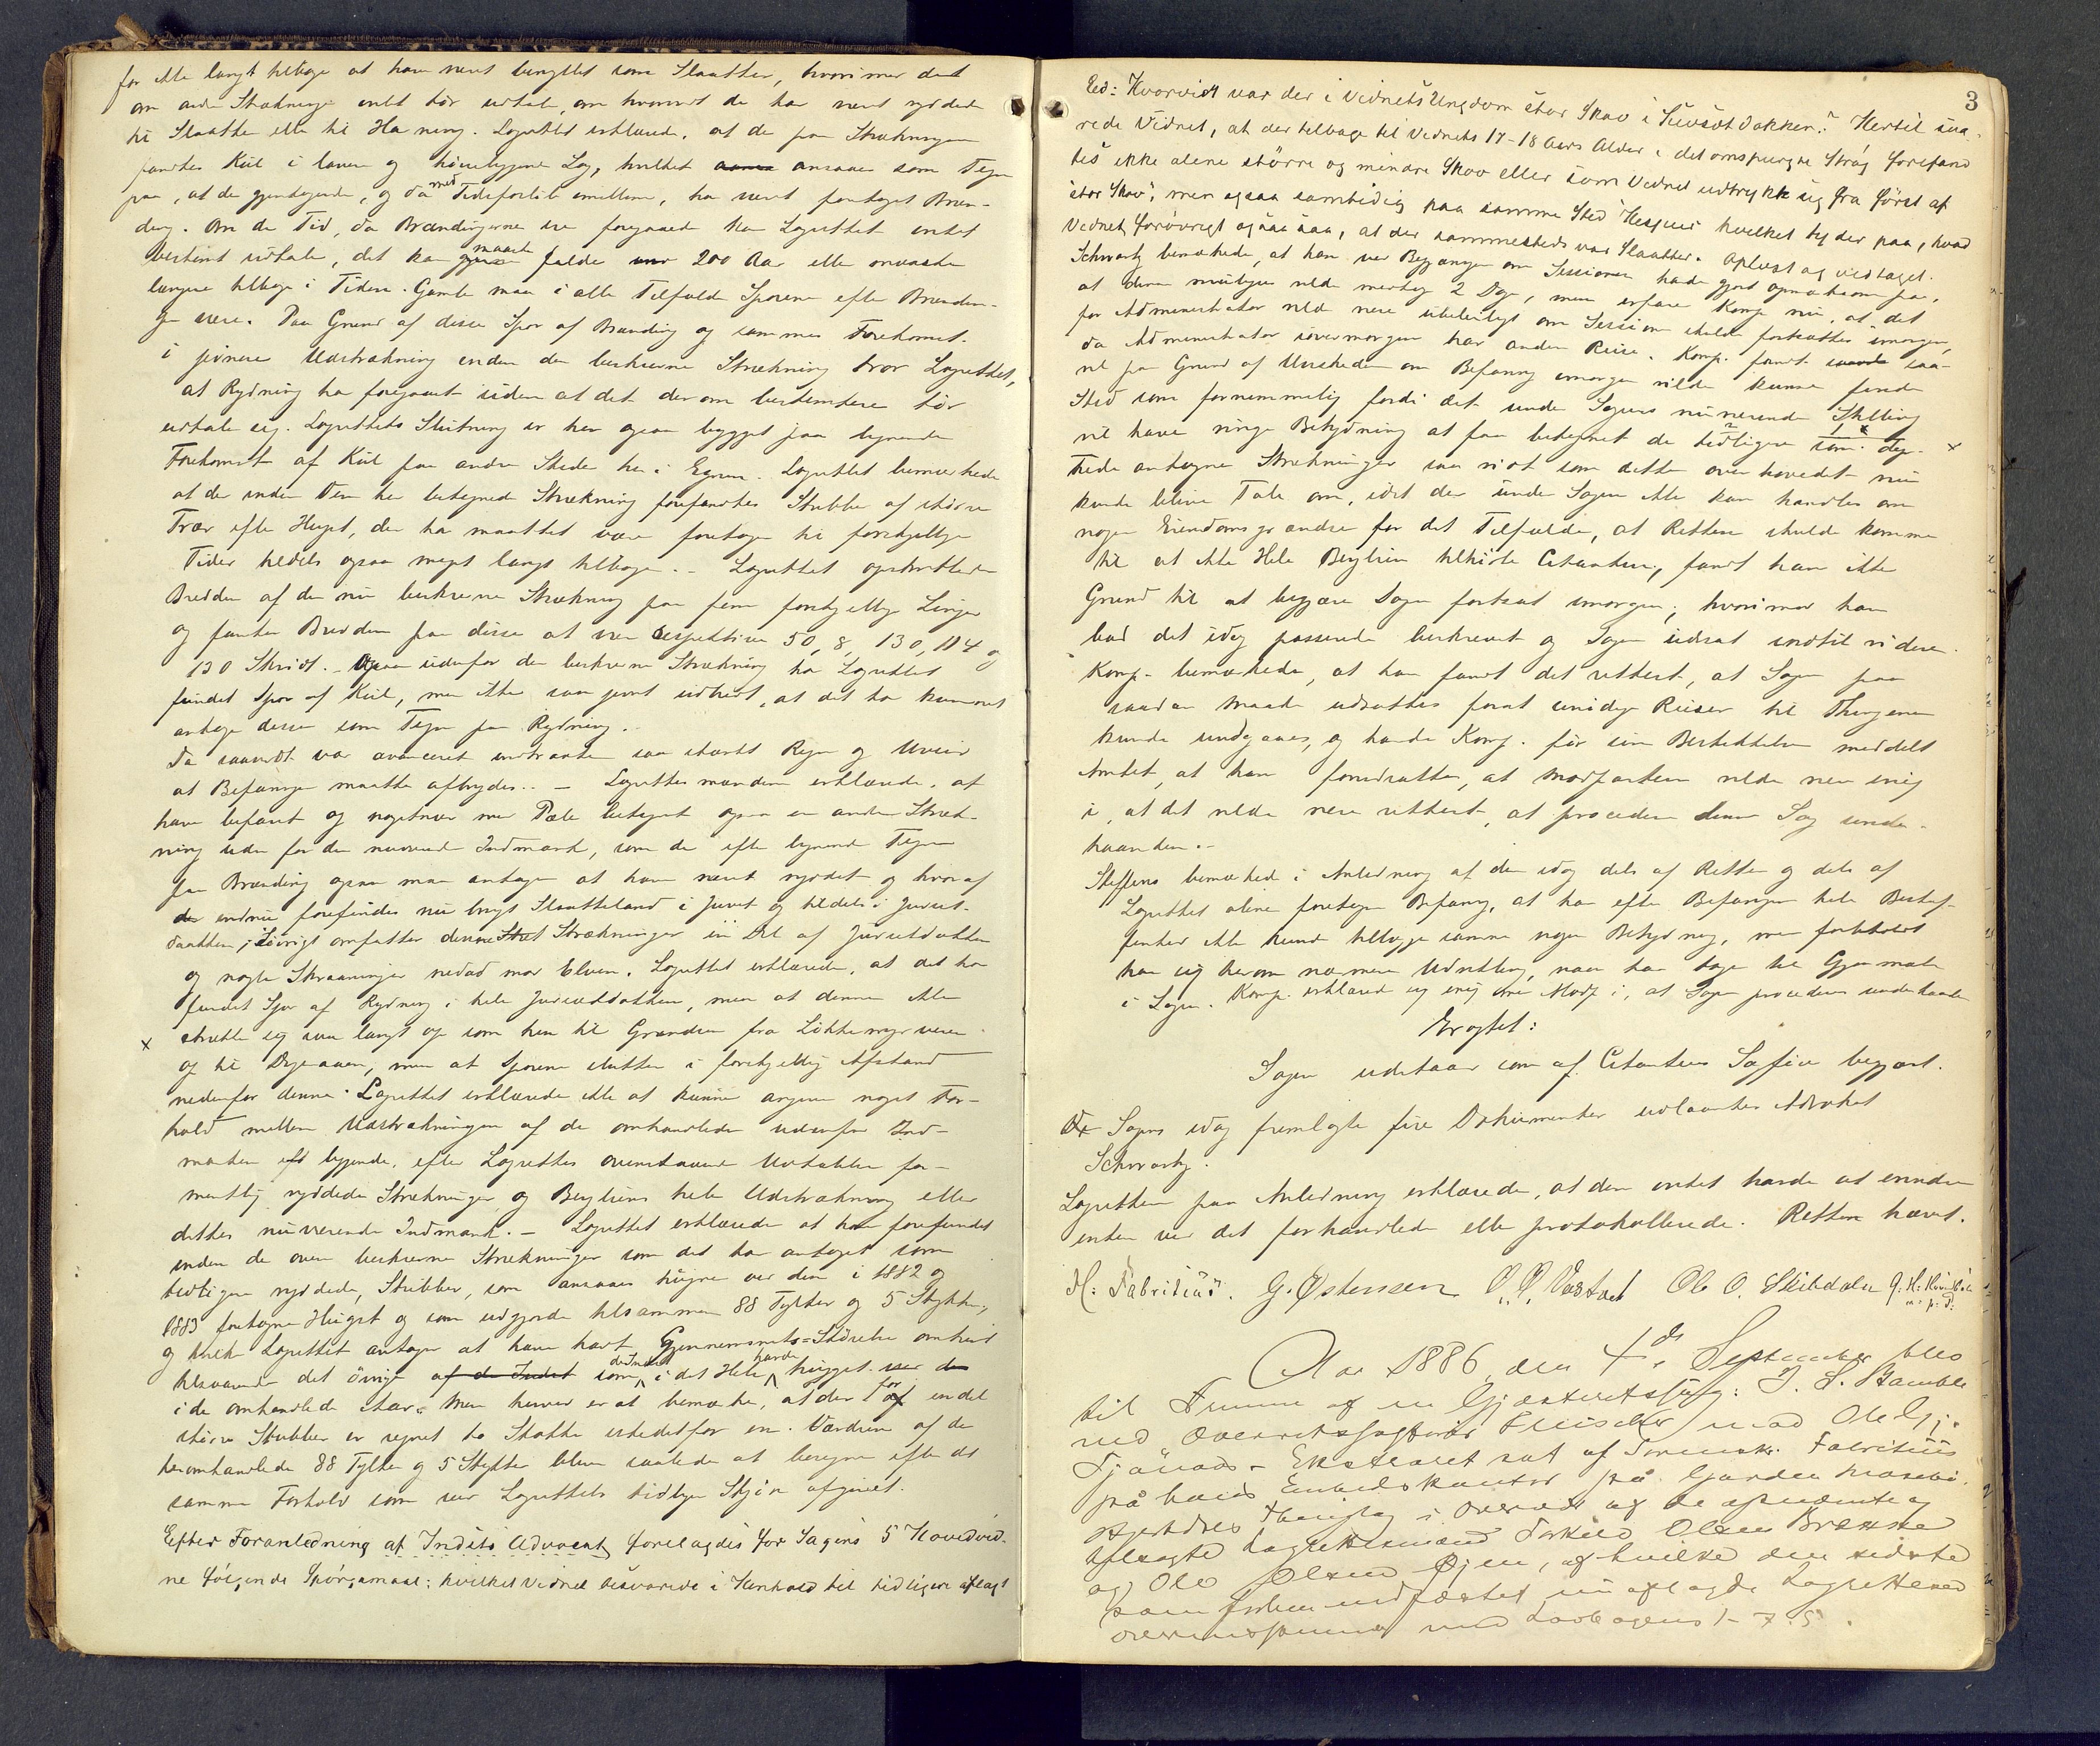 for ikke langt tilbage at have været benyttet som Slaatter, hvorimod det
om andre Strækninger intet tør udtale, om hvorvidt de har været ryddede
til Slaatter eller til Havning. Lagrettet erklærede, at der paa Strækningen
fandtes Kul i lavere og høiere liggende Lag, hvilket ansaaes som Tegn
paa, at der gjentagende, og da med Tidsforløb imellem, har været foretaget Bræn-
ding. Om den Tid, da Brændingerne ere foregaaede kan Lagrettet intet
bestemt udtale, det kan maaske falde 200 Aar eller omtrent
længere tilbage i Tiden. Gamle maa i alle Tilfælde Sporene efter Brænden-
ge være. Paa Grund af disse Spor af Brænding og sammes Forekomst
i jevnere Udstrækning inden den beskrevne Strækning tror Lagrettet,
at Rydning har foregaaet uden at det derom bestemtere tør
udtale sig. Lagrettets Slutning er her ogsaa bygget paa lignende
Forekomst af Kul paa andre Steder her i Egnen. Lagrettet bemærkede
at der inden den her betegnede Strækning forefandtes Stubber af større
Trær efter Hugst, der har maattet være foretagen til forskjellige
Tider tildels ogsaa meget langt tilbage. - Lagrettet opskridtede
Bredden af den nu beskrevne Strækning paa fem forskjellige Linjer
og fandtes Bredden paa disse at være respektive 50, 8, 130, 114 og
130 Skridt. - Ogsaa udenfor den beskrevne Strækning har Lagrettet
fundet Spor af Kul, men ikke saa jevnt udbredt, at det har kunnet
antage disse som Tegn paa Rydning.
Da saavidt var avanceret indtraadte saa stærkt Regn og Uveir
at Befaringen maatte afbrydes. - Lagrettesmændene erklærede, at
have befaret og nogetnær med Pæle betegnet ogsaa en anden Stræk-
ning uden for den nuværende Indmark, som de efter lignende Tegn
paa Brænding ogsaa maa antage at have været ryddet og hvoraf
der endnu forefindes nu brugt Slaatteland i Juvet og tildels i Juvet-
daatten; iøvrigt omfatter denne Strækninger en Del af Juvetdokken
og nogle Skraaninger nedad mod Elven. Lagrettet erklærede, at det har
fundet Spor af Rydning i hele Juvetdokken, men at denne ikke
strækker sig saa langt op som hen til Grændsen fra Løkkemyrveien
og til Dyraaen, men at Sporene slutter i forskjellig Afstand
nedenfor denne. Lagrettet erklærede ikke at kunne angive noget For-
hold mellem Udstrækningen af de omhandlede udenfor Ind-
marken liggende, efter Lagrettets ovenstaaende Udtalelse for-
mentlig ryddede Strækninger og Beyliens hele Udstrækning eller
dettes nuværende Indmark. - Lagrettet erklærede at have forefundet
inden de oven beskrevne Strækninger som det har antaget som
tidligere ryddede, Stubber, som ansaaes hugne ved den i 1882 og
1883 foretagne Hugst og som udgjorde tilsammen 88 Tylfter og 5 Stykker,
og hvilke Lagrettet antager at have havt Gjennemsnits=Størrelse omtrent
tilsvarende det øvrige af de Indet som de Indst. i det Hele havde hugget
i de omhandlede Aar. Men herved er at bemærke, at der for en del
større Stubber er regnet to Stokke istedetfor en. Værdien af de
heromhandlede 88 Tylfter og 5 Stykker bliver saaledes at beregne efter det
samme Forhold som ved Lagrettets tidligere Skjøn afgivet.
Efter Foranledning af Indsts Advocat forelagdes for Sagens 5 Hovedvid-
ne følgende Spørgsmaal; hvilket Vidnet besvarede i Henhold til tidligere aflagt
3
Eed: Hvorvidt var der i Vidnets Ungdom stor Skov i Juvetdokken? Hertil sva-
rede Vidnet, at der tilbage til Vidnets 17-18 Aars Alder i det omspurgte Strøg forefand
tes ikke alene større og mindre Skov eller som Vidnet udtrykte sig fra først af
"stor Skov", men ogsaa samtidig paa samme Sted Hesjeur hvilket tyder paa, hvad
Vidnet forøvrigt ogsaa saa, at der sammesteds var Slaatter. Oplæst og vedtaget.
Schwartz bemærkede, at han ved Begjæringen om Sessionen havde gjort opmærksom paa,
at denne muligens vilde medtage 2 Dage, men erfarer Komp. nu, at det
for Administrator vilde være ubeleiligt om Sessionen skulde fortsættes imorgen,
da Administrator iovermorgen har anden Reise. Komp. fandt saa-
vel paa Grund af Uvisheden om Befaring imorgen vilde kunne finde
Sted som fornemmelig fordi det under Sagens nuværende Stilling
vil have ringe Betydning at faa betegnet de tidligere som ryd-
dede antagne Strækninger saa vidt som dette over hovedet nu
kunde blive Tale om, idet der under Sagen ikke kan handles om
nogen Eiendomsgrændse for det Tilfælde, at Retten skulde komme
til at ikke Hele Beylien tilhørte Citanten, fandt han ikke
Grund til at begjære Sagen fortsat imorgen; hvorimod han
bad det idag passerede beskrevet og Sagen udsat indtil videre.
Komp. bemærkede, at han fandt det rettest, at Sagen paa
saadan Maade udsættes forat unødige Reiser til Thingene
kunde undgaaes, og havde Komp. før sin Beskikkelse meddelt
Amtet, at han forudsatte, at Modparten vilde være enig
i, at det vilde være rettest, at procedere denne Sag under-
haanden. -
Steffens bemærkede i Anledning af den idag dels af Retten og dels af
Lagrettet alene foretagne Befaring, at han efter Befaringens hele Beskaf-
fenhed ikke kunde tillægge samme nogen Betydning, men forbeholdt
han sig herom nærmere Udvikling, naar han tager til Gjenmæle
i Sagen. Komp. erklærede sig enig med Modp. i, at Sagen procederes underhaanden
Eragtet:
Sagen udstaar som af Citantens Sagfører begjært.
De Sagen idag fremlagte fire Dokumenter udlaantes Advokat
Schwartz.
Lagretten paa Anledning erklærede, at den intet havde at erindre
enten ved det forhandlede eller protokollerede. Retten hævet.
H: Fabritius. G. Østensen O. O. Vostad Ole O. Skibdalen
m: p: P:
Aar 1886, den 4de September blev
til Fremme af en Gjæsteretssag: J. S. Stamble
ved Overretssagfører mod Ole Gj.
Tjønaas - Ekstraret sat af Sorensk. Fabritius
på hans Embedskontor på Gaarden
Thinglag i Overvær af de opnævnte og
aflagte Lagrettesmænd Torkild Olsen Brække
og Ole Olsen Øjen, af hvilke den sidste
som forhen nu aflagde Lagretteseed
overensstemmende med Lovbogens 1-7-5.